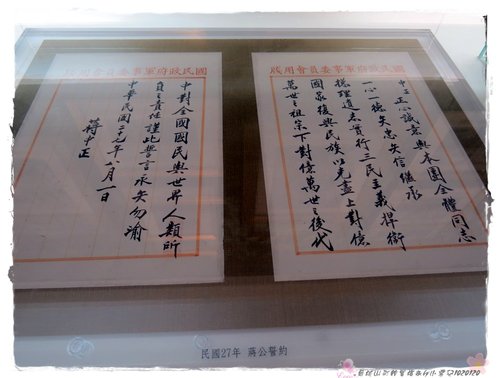 國民政府軍事委員會用牋
中正正心誠意與本團全體同志
一心一德矢忠矢信繼承
總理遺志實行三民主義捍衛
國家復興民族以克盡上對億
萬世之祖宗下對億萬世之後代
國民政府軍事委員會用牋
中對全國國民與世界人類所
負之責任謹此誓言永矢勿渝
中華民國二十七年八月一日
蔣中正
民國27年 蔣公誓約
1020120